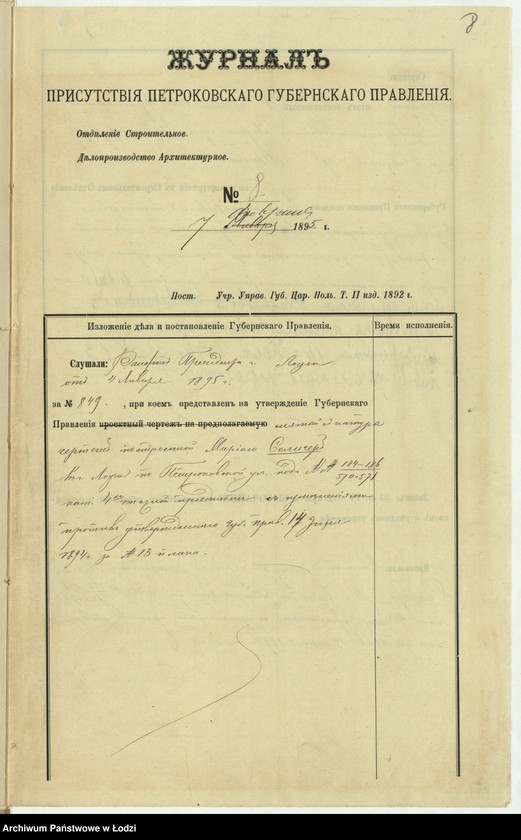 8
ЖУРНАЛЪ
ПРИСУТСТВІЯ ПЕТРОКОВСКАГО ГУБЕРНСКАГО ПРАВЛЕНІЯ.
Отдѣленіе Строительное.
Дѣлопроизводство Архитектурное.
№ 8
7 Февраля Января 1895 г.
Пост. Учр. Управ. Губ. Цар. Поль. Т. II изд. 1892 г.
Изложеніе дѣла и постановленіе Губернскаго Правленія, Время исполненія.
Слушали: Рапортъ Президента г. Лодзи
отъ 4 Января 1895 г.
за № 849. , при коемъ представленъ на утвержденіе Губернскаго
Правленія проектный чертежъ на предполагаемую снятый съ натуры
чертежъ построенной
въ г. Лодзи по Петроковской ул. подъ №№ 184-186 / 570-571
кам. 4хъ этажн. съ измѣненіями
противъ утвержденнаго Губ. Прав. 14
1894 г. за № 13 плана.
Archiwum Państwowe w Łodzi